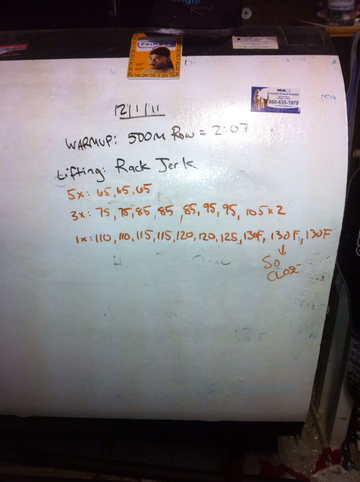 12/1/11
WARMUP: 500m Row = 2:07
Lifting: Rack Jerk
5x: 65, 65, 65
3x: 75, 75, 85, 85, 85, 95, 95, 105x2
1x: 110, 110, 115, 115, 120, 120, 125, 130F, 130F, 130F
↓
SO
CLOSE
860-635-1979